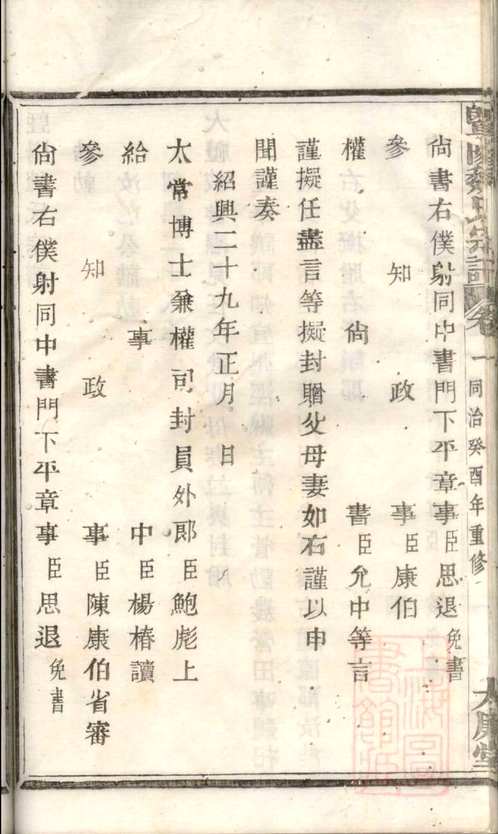 暨陽魏氏宗譜 卷一 同治癸酉年重修 大庾堂
尙書右僕射同中書門下平章事臣思退免書
參知政事臣康伯
權尙書臣允中等言
謹擬任盡言等擬封贈父母妻如右謹以申
聞謹奏
紹興二十九年正月 日
太常博士兼權司封員外郎臣鮑彪上
給事中臣楊椿讀
參知政事臣陳康伯省審
尙書右僕射同中書門下平章事臣思退免書
上海圖書館藏